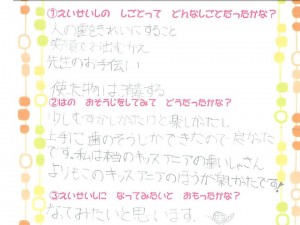 ①えいせいしの しごとって どんなしごとだったかな?
人の歯をきれいにすること
笑顔でお出むかえ
先生のお手伝い
使た物は消毒する
②はの おそうじをしてみて どうだったかな?
少しむずかしかたけど楽しかたし
上手に歯のそうじができたので良かった
です。私は本当のキッズアニアの歯いしゃさん
よりもこのキッズアニアのほうが楽しかたです!
③えいせいしに なってみたいと おもったかな?
なってみたいと思います。